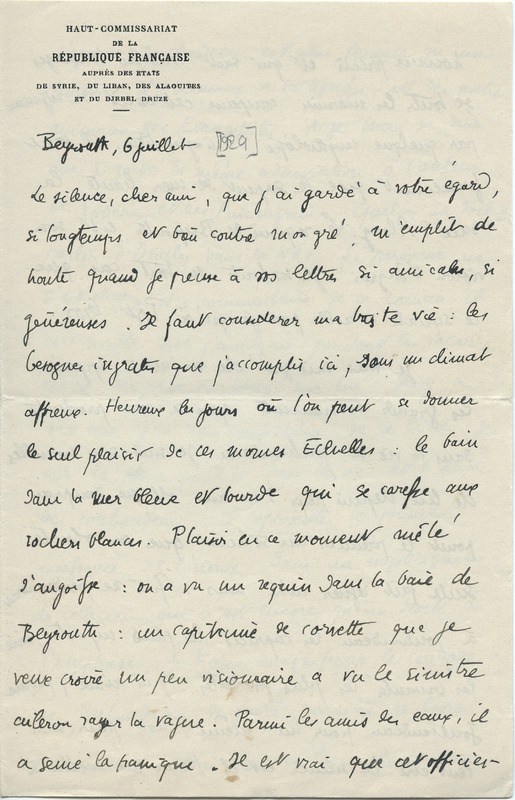 HAUT-COMMISSARIAT
DE LA
RÉPUBLIQUE FRANÇAISE
AUPRÈS DES ETATS
DE SYRIE, DU LIBAN, DES ALAOUITES
ET DU DJEBEL DRUZE
Beyrouth, 6 juillet [1929]
Le silence, cher ami, que j'ai gardé à votre égard,
si longtemps et bien contre mon gré, m'emplit de
honte quand je pense à vos lettres si amicales, si
généreuses. Il faut considérer ma vie : les
besognes ingrates que j'accomplis ici, dans un climat
affreux. Heureux les jours où l'on peut se donner
le seul plaisir de ces mornes Echelles : le bain
dans la mer bleue et lourde qui se caresse aux
rochers blancs. Plaisir en ce moment mêlé
d'angoisse : on a vu un requin dans la baie de
Beyrouth : un capitaine de corvette que je
veux croire un peu visionnaire a vu le sinistre
aileron rayer la vague. Parmi les amis des eaux, il
a semé la panique. Il est vrai que cet officier